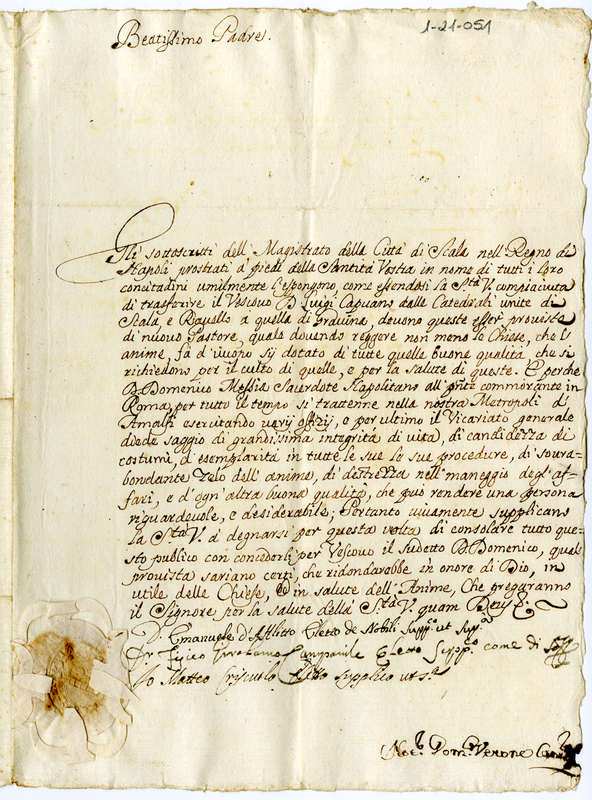 1-21-051
Beatissimo Padre.
Gli sottoscritti dell' Magistrato della Città di Scala nell' Regno di
Napoli, prostrati a' piedi della Santità Vostra in nome di tutti i loro
concittadini umilmente l'espongono, come essendosi la Stà V. compiaciuta
di trasferire il Vescovo D. Luigi Capuano dalle Catedrali unite di
Scala, e Ravello à quella di Gravina, devono queste esser proviste
di nuovo Pastore, quale dovendo reggere non meno le Chiese, che l'
anime, fà d'uuopo sij dotato di tutte quelle buone qualità, che si
richiedono per il culto di quelle, e per la salute di queste. E perche
D. Domenico Messia Sacerdote Napolitano all' pnte commorante in
Roma, per tutto il tempo si trattenne nella nostra Metropoli d'
Amalfi esercitando varij offizij, e per ultimo il Vicariato generale
diede saggio di grandissima integrità di vita, di candidezza di
costumi, d'esemplarità in tutte le sue le sue procedure, di sovra-
bondante zelo dell' anime, di destrezza nell' maneggio degl' af-
fari, e d'ogn' altra buona qualità, che può rendere una persona
riguardevole, e desiderabile; Pertanto vivamente supplicano
la Stà V. à degnarsi per questa volta di consolare tutto que-
sto publico con concederli per Vescovo il sudetto D. Domenico, qual
provista sariano certi, che ridondarebbe in onore di Dio, in
utile delle Chiese, ed in salute dell' Anime, Che pregaranno
il Signore per la salute della Stà V. quam Deus &c.
D. Emanuele D'Afflitto Eletto de Nobili suppca ut suppa
Campanile Eletto suppco come di sopra
Io Matteo Criscolo Eletto supplico ut sa
Not. Dom. Verone Canc.